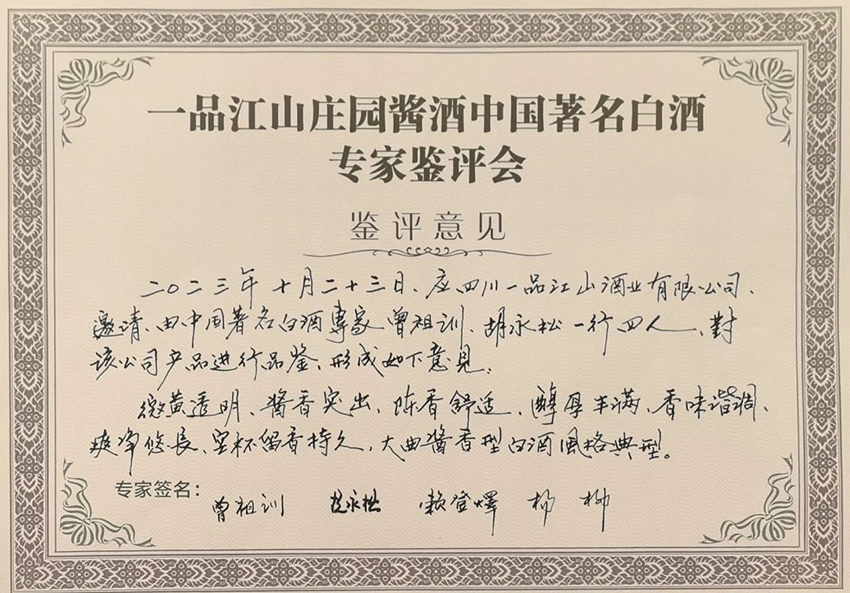 一品江山庄园酱酒中国著名白酒
专家鉴评会
鉴评意见
二〇二三年十月二十三日、应四川一品江山酒业有限公司、
邀请、由中国著名白酒專家曾祖训、胡永松一行四人、對
该公司产品进行品鉴、形成如下意见:
微黄透明、酱香突出、陈香舒适、醇厚丰满、香味谐调、
爽净悠長、空杯留香持久、大曲酱香型白酒風格典型。
专家签名:
曾祖训 胡永松 赖登燡 杨柳